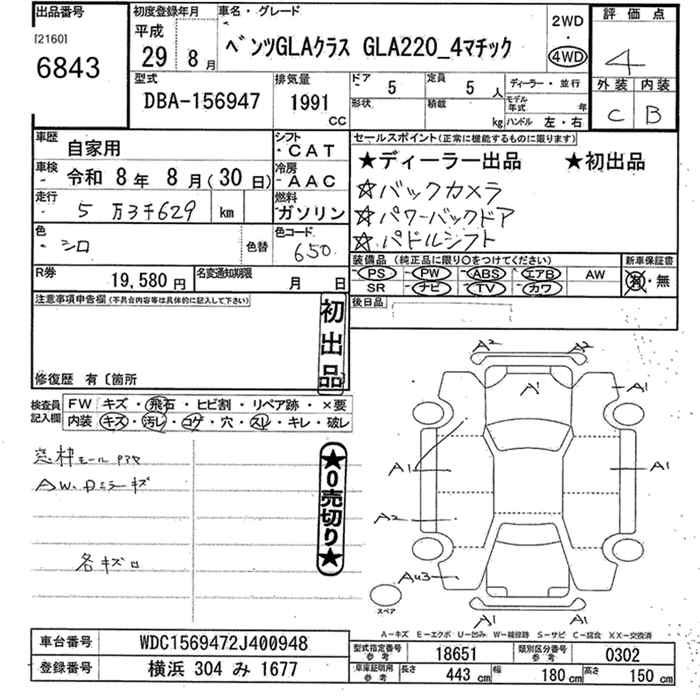 出品番号
[2160]
6843
初度登録年月
平成
29 8月
車名・グレード
ベンツGLAクラス GLA220_4マチック
2WD
・
4WD
評価点
4
外装 内装
C B
型式
DBA-156947
排気量
1991
CC
ドア 5
定員 5人
ディーラー・並行
形状
積載 kg
モデル年式 年
ハンドル 左・右
車歴
自家用
シフト
・CAT
車検
令和 8年 8月(30日)
冷房
・AAC
走行
5万3千629 km
燃料
ガソリン
色
シロ
色替
色コード
650
セールスポイント(正常に機能するものに限ります)
★ディーラー出品 ★初出品
☆バックカメラ
☆パワーバックドア
☆パドルシフト
装備品 (純正品に限り○をつけてください)
新車保証書
PS PW ABS エアB AW
SR ナビ TV カワ
有・無
R券
19,580円
名変通知期限
月 日
後日品
注意事項申告欄(不具合内容等は具体的に記入して下さい)
初出品
修復歴 有〔箇所
検査員記入欄
FW キズ・飛石・ヒビ割・リペア跡・×要
内装 キズ・汚レ・コゲ・穴・スレ・キレ・破レ
窓枠モール
AW.Dミラーキズ
各キズ
★0売切り★
A2 A2
A1 A1
A1 A1
A2
AU3
A1 A1
スペア
A-キズ E-エクボ U-凹み W-補修跡 S-サビ C-腐食 XX-交換済
車台番号
WDC1569472J400948
登録番号
横浜 304 み 1677
型式指定番号
参考
18651
類別区分番号
参考
0302
車庫証明用
参考
長さ 443 cm
幅 180 cm
高さ 150 cm